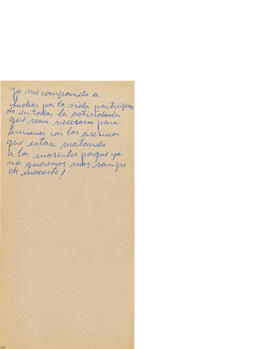 Yo me comprometo a
luchar por la vida participan
do en todas la actividades
que sean necesaria para
terminar con los asesinos
que estan matando
a los inosentes porque ya
no queremos mas sangre
de inocente!